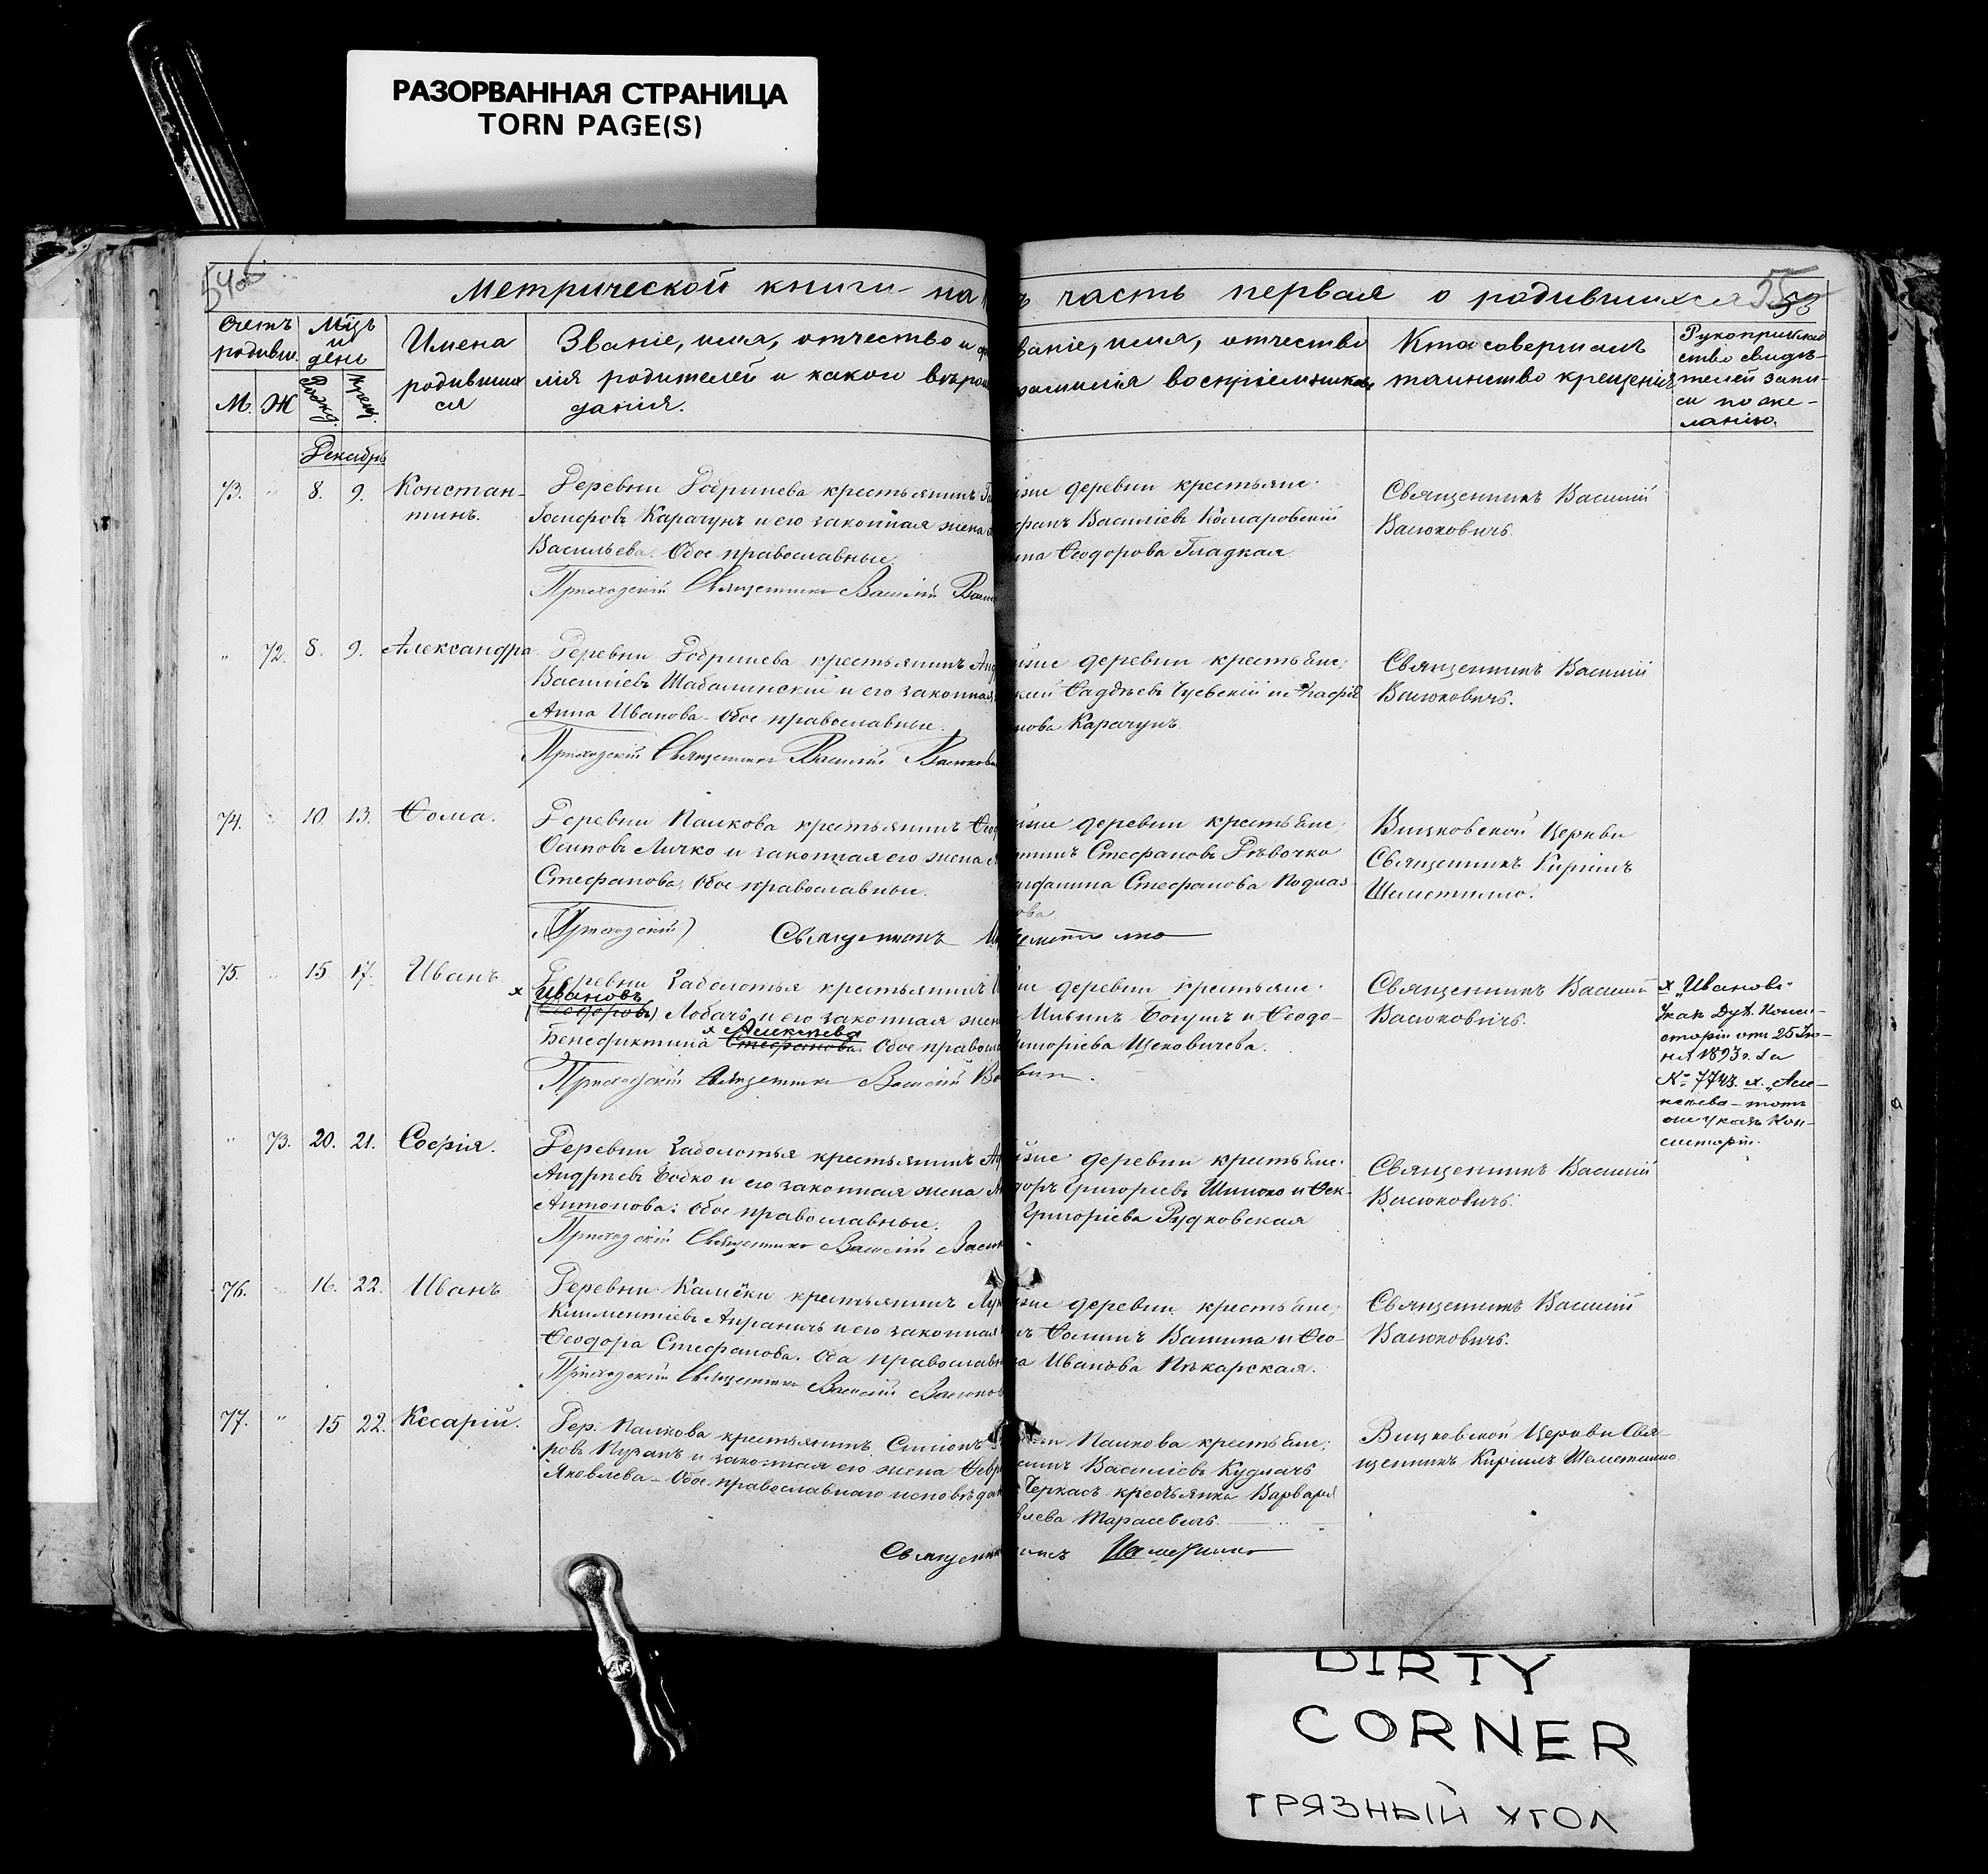 РАЗОРВАННАЯ СТРАНИЦА
TORN PAGE(S)
54об
55
Метрической книги на
ъ часть первая о родившихся
Счетъ родивш.
М.
Ж
Мцъ и день
Рожд.
Крещ.
Имена родившихся
Званіе, имя, отчество и ф
мія родителей и какого вѣроис
данія.
Званіе, имя, отчество
фамилія воспріемниковъ
Кто совершалъ
таинство крещенія
Рукоприклад
ство свидѣ-
телей запи-
си по же-
ланію.
Декабрь
73. " 8. 9. Констан-
тинъ.
Деревни Добринева крестьянинъ
Іосифовъ Карачунъ и его законная жена
Васильева. Обое православные.
Приходскій Священникъ Василій
деревни крестьяне:
Василіевъ Комаровскій
Ѳеодорова Гладкая
Священникъ Василій
Васюковичъ.
" 72. 8. 9. Александра
Деревни Добринева крестьянинъ
Василіевъ Шабалинскій и его законная
Анна Иванова. Обое православные.
Приходскій Священникъ Василій
деревни крестьяне;
Карачунъ
Священникъ Василій
Васюковичъ.
74. " 10. 13. Ѳома.
Деревни Паликова крестьянинъ
Осиповъ Личко и законная его жена
Стефанова. Обое православные.
(Приходскій) Священникъ
деревни крестьяне;
Стефановъ Рѣвочко
Стефанова
Священникъ Кириллъ
Шеметилло.
75. " 15 17. Иванъ
Деревни Заболотья крестьянинъ
х Ивановъ
(Ѳеодоровъ) Лобачъ и его законная жена
х Алексѣева
Бенефиктина Стефанова. Обое правосла
Приходскій Священникъ Василій
деревни крестьяне:
Ильинъ Богушъ и Ѳеодо-
Григоріева Щековичева.
Священникъ Василій
Васюковичъ.
х „Ивановъ"
Указ Дух. Конси-
сторіи отъ 25 Ію-
ня 1893 г. за
№ 7743. х. „Але-
ксѣева – тотъ
же указъ Кон-
систоріи.
" 73. 20. 21. Софія.
Деревни Заболотья крестьянинъ
Андреевъ Бобко и его законная жена
Антонова. Обое православные.
Приходскій Священникъ Василій
деревни крестьяне:
Григоріевъ Шинко и Ѳек-
Григоріева Рудковская
Священникъ Василій
Васюковичъ.
76. " 16. 22. Иванъ
Деревни Камёки крестьянинъ
Климентіевъ Апраничъ и его законная
Ѳеодора Стефанова. Оба православн
Приходскій Священникъ Василій
деревни крестьяне;
Ѳоминъ Вашина и Ѳео-
Иванова Пѣкарская.
Священникъ Василій
Васюковичъ.
77. " 15 22. Кесарій.
Дер. Паликова крестьянинъ Симонъ
ровъ Пузанъ и законная его жена
Яковлева – Обое православнаго исповѣдан
Паликова крестьяне;
Василіевъ Кудлачъ
Черкасъ крестьянка Варвара
Тарасевичъ.
Церкви Свя-
щенникъ Кириллъ Шеметилло
Священникъ Шеметилло
DIRTY
CORNER
ГРЯЗНЫЙ УГОЛ